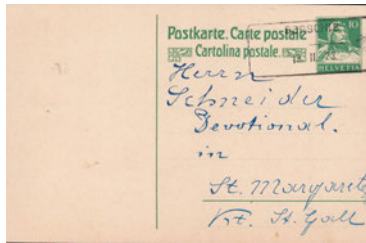 Postkarte. Carte postale
Cartolina postale.
10
HELVETIA
II. 23
Herrn
Schneider
Devotional.
in
St. Margareth
Kt. St. Gall